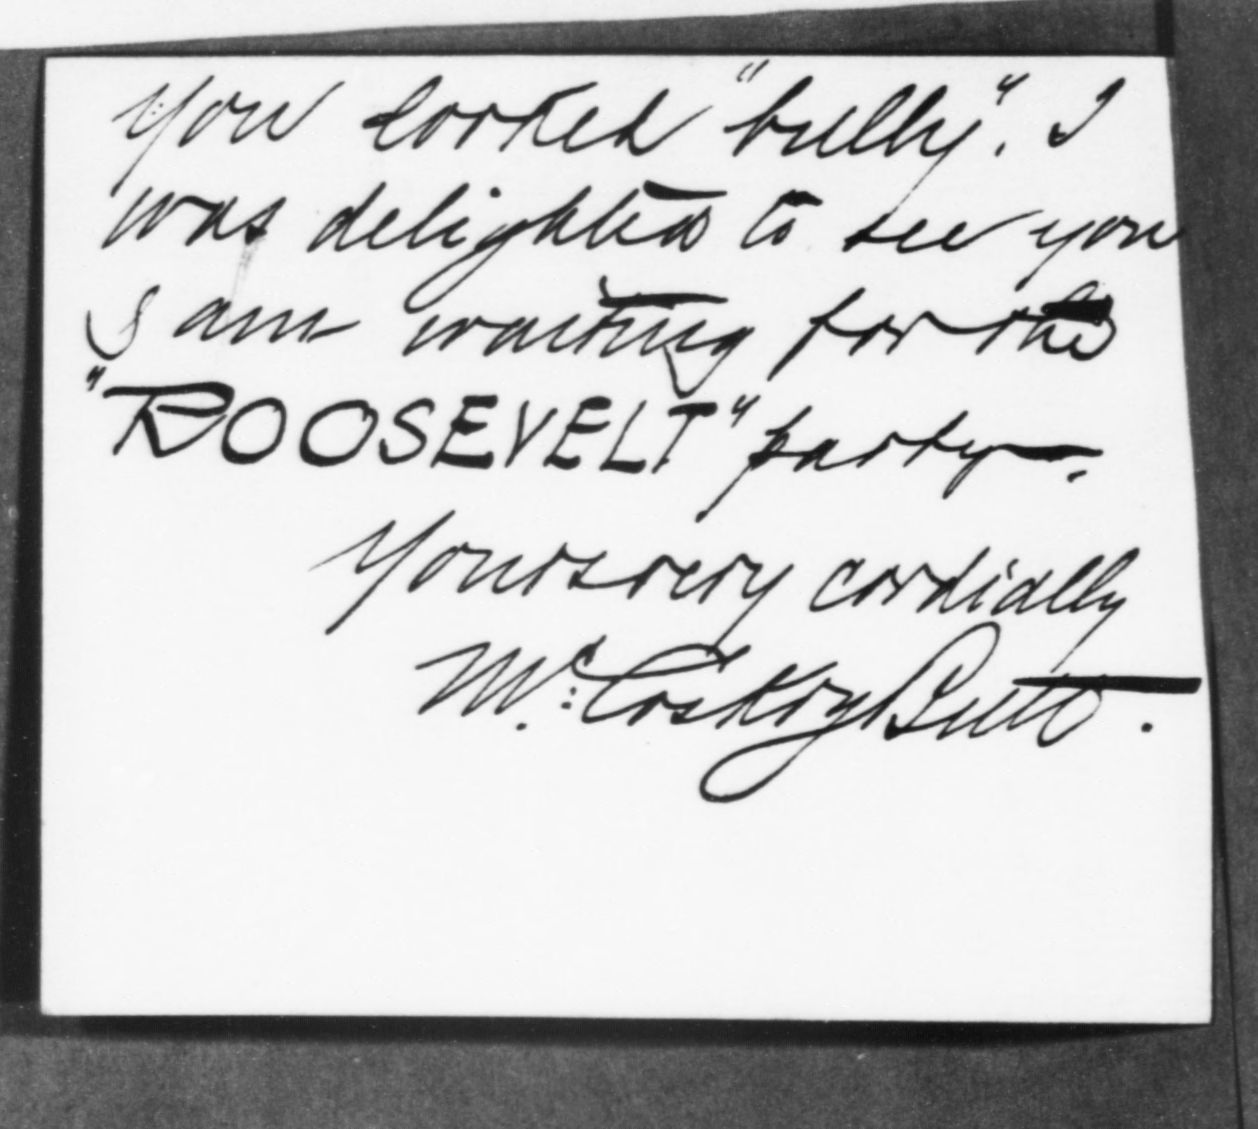 you looked "bully". I
was delighted to see you
I am waiting for the
"ROOSEVELT" party.
Yours very cordially
Mc. Coskry Butt.